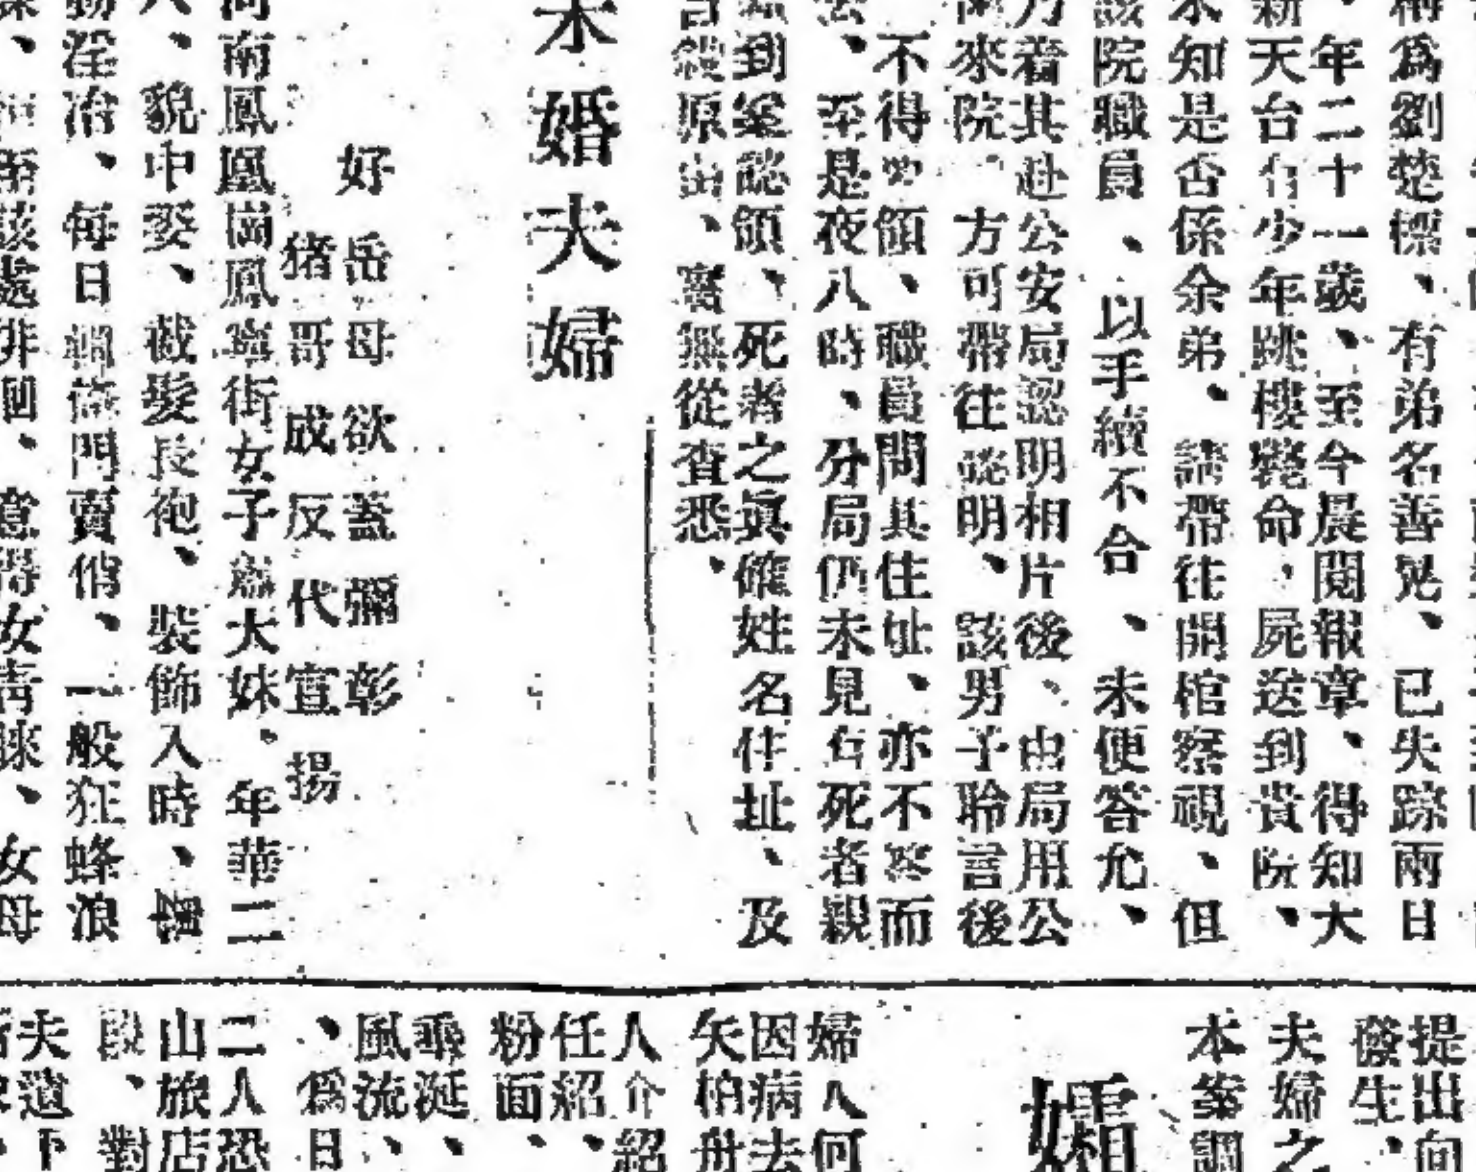 稱爲劉楚標、有弟名善晃、已失踪兩日
、年二十一歲、至今晨閱報章、得知大
新天台有少年跳樓斃命、屍送到貴院、
未知是否係余弟、請帶往開棺察視、但
該院職員、以手續不合、未便答允、
乃着其赴公安局認明相片後、由局用公
函來院、方可帶往認明、該男子聆言後
不得要領、職員問其住址、亦不答而
去、至是夜八時、分局仍未見有死者親
到案認領、死者之眞確姓名住址、及
原由、實無從查悉、
未婚夫婦
好岳母欲蓋彌彰
猪哥成反代宣揚
河南鳳凰崗鳳寧街女子蕭大妹、年華二
八、貌中姿、截髮長袍、裝飾入時、
淫冶、每日倚門賣俏、一般狂蜂浪
該處徘徊、意得女青睞、女母
提出向
發生、
夫婦之
本案調
婦人何
因病去
矢柏舟
人介紹
任紹、
粉面、
垂涎、
風流、
、爲日
二人恐
山旅店
段、對
夫適下